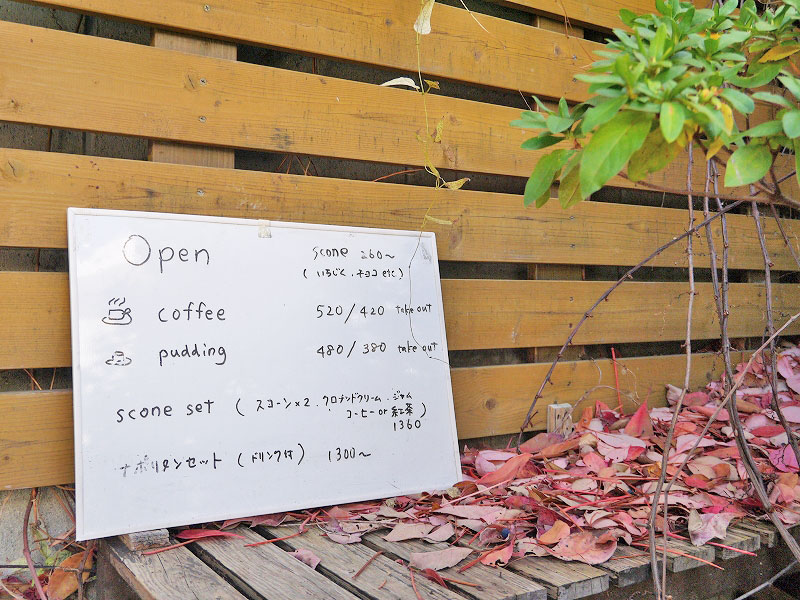 Open
scone 260～
(いちじく、チョコ etc)
coffee 520/420 take out
pudding 480/380 take out
scone set (スコーン×2、クロテッドクリーム、ジャム
コーヒー or 紅茶)
1360
ナポリタンセット(ドリンク付) 1300～